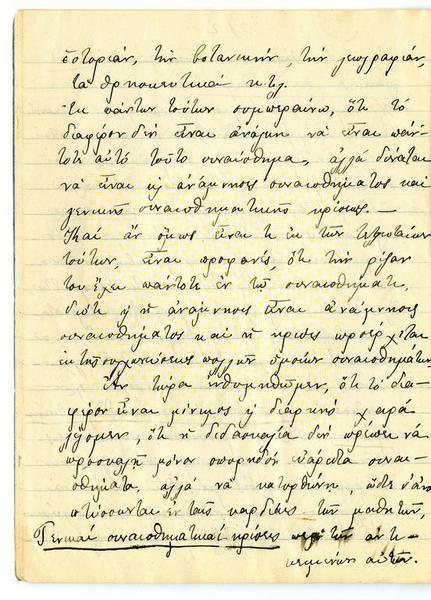 ἱστορίαν, τὴν βοτανικήν, τὴν γεωγραφίαν,
τὰ θρησκευτικά κ.τ.λ.
Ἐκ πάντων τούτων συμπεραίνω, ὅτι τὸ
διαφέρον δὲν εἶναι ἀνάγκη νὰ εἶναι πάν-
τοτε αὐτὸ τοῦτο συναίσθημα, ἀλλὰ δύναται
νὰ εἶναι ἢ ἀνάμνησις συναισθήματος καὶ
γενικῆς συναισθηματικῆς κρίσεως. —
Καὶ ἂν ὅμως εἶναι τι ἐκ τῶν τελευταίων
τούτων, εἶναι προφανές, ὅτι τὴν ῥίζαν
του ἔχει πάντοτε ἐν τῷ συναισθήματι,
διότι ἡ ἀνάμνησις εἶναι ἀνάμνησις
συναισθήματος καὶ ἡ κρίσις προέρχεται
ἐκ τῆς συγχωνεύσεως πολλῶν ὁμοίων συναισθημάτων.
Ἂν τώρα ἐνθυμηθῶμεν, ὅτι τὸ δια-
φέρον εἶναι μόνιμος ἢ διαρκὴς χαρά
λέγομεν, ὅτι ἡ διδασκαλία δὲν πρέπει νὰ
προσκαλῇ μόνον σποραδικὰ συναι-
σθήματα, ἀλλὰ νὰ κατορθώνῃ, ὥστε
ἐν ταῖς καρδίαις τῶν μαθητῶν,
Γενικαὶ συναισθηματικαὶ κρίσεις περὶ τῶν ἀντι-
κειμένων αὐτῶν.